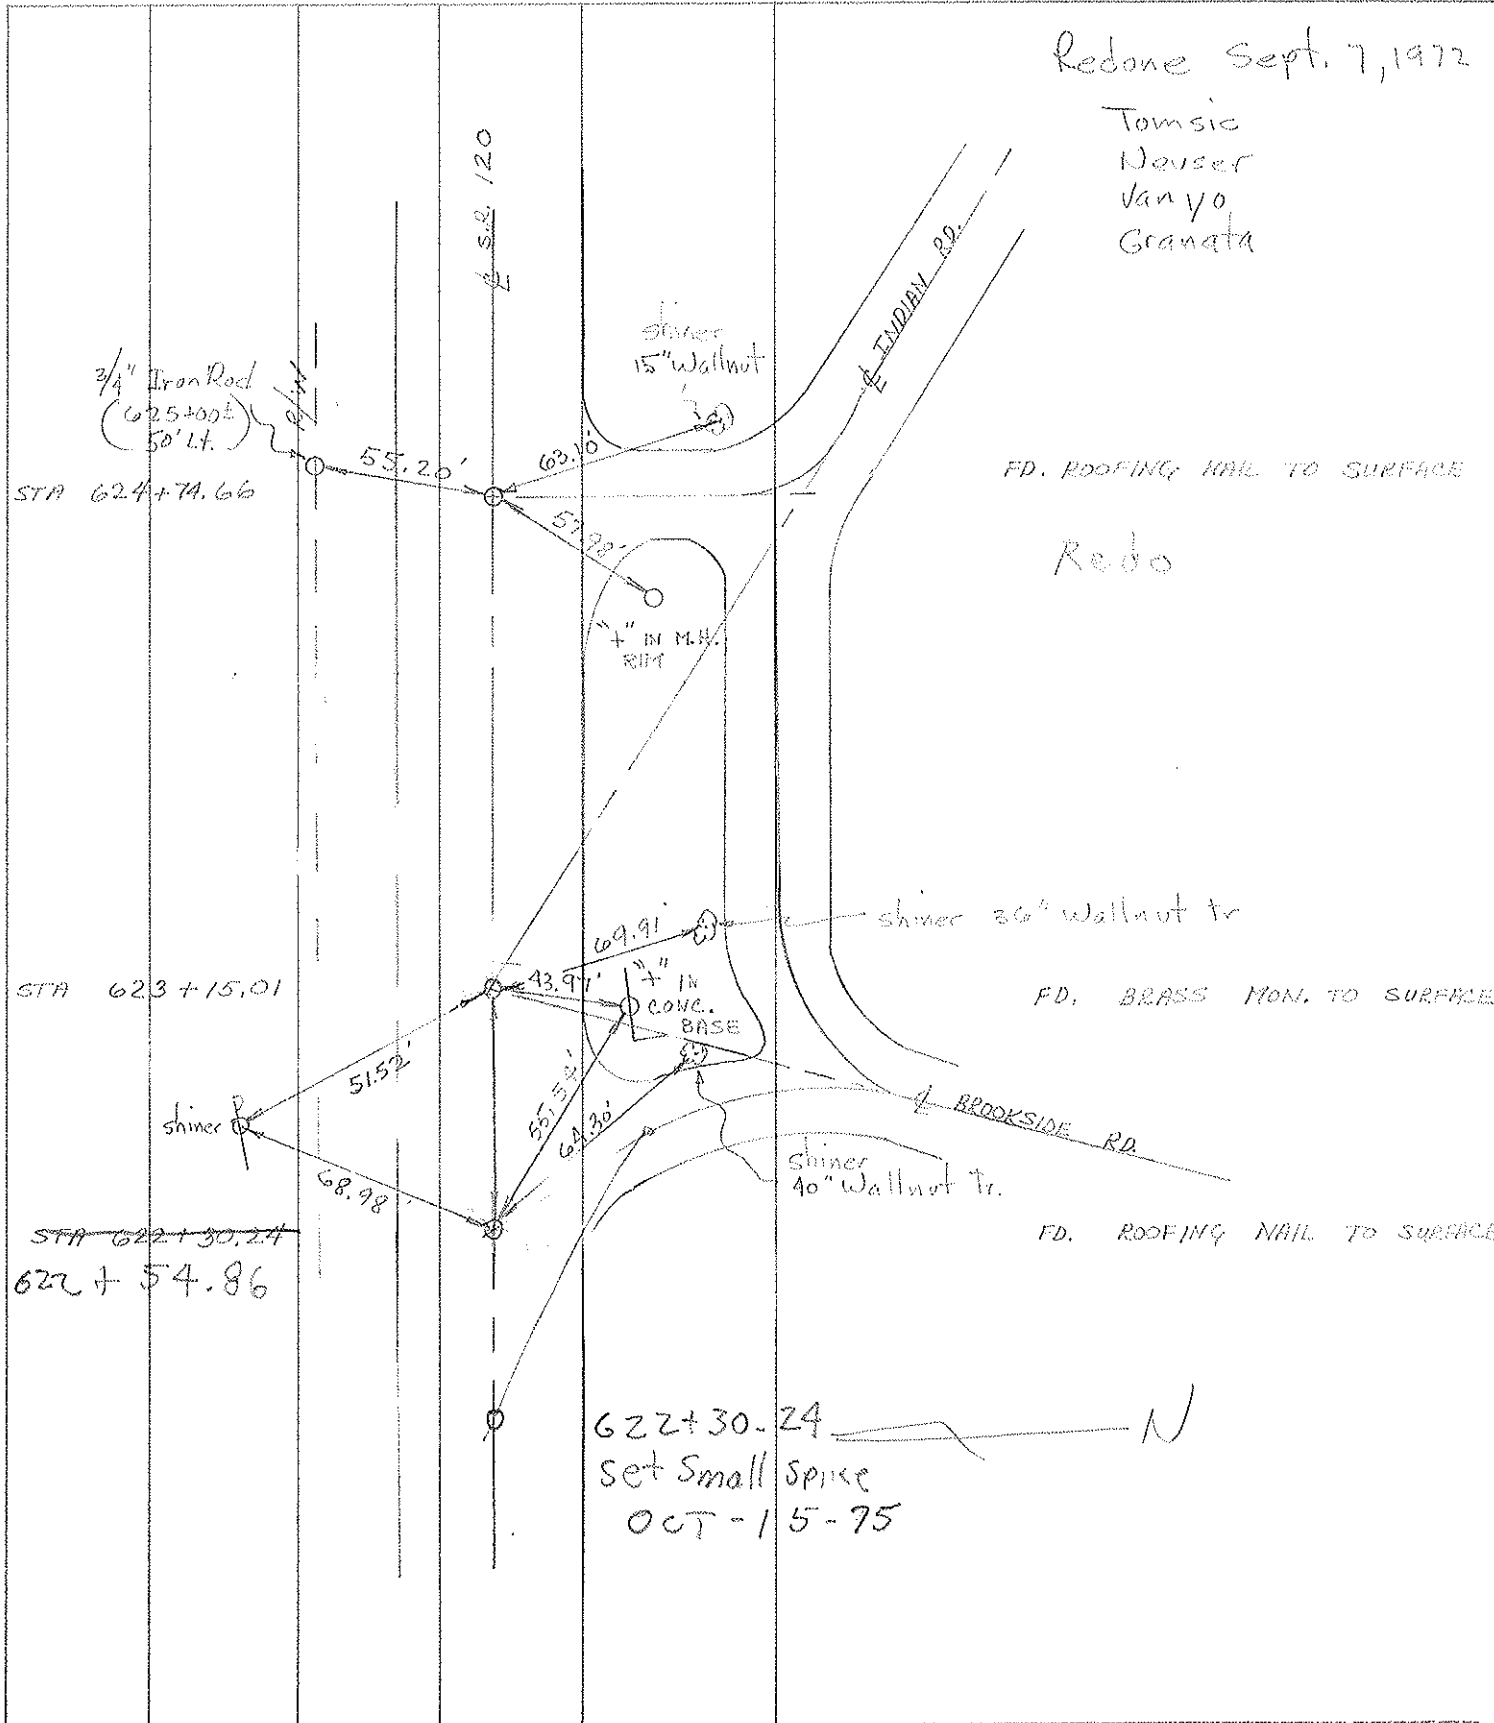 Redone Sept. 7, 1972
Tomsic
Neuser
Vanyo
Granata
℄ S.R. 120
℄ INDIAN RD.
shiner
15" Wallnut
3/4" Iron Rod
(625+00±
50' Lt.)
R/W
55.20'
63.10'
STA 624+74.66
FD. ROOFING NAIL TO SURFACE
57.98'
Redo
"+" IN M.H.
RIM
69.91'
shiner 36" Wallnut tr
STA 623+15.01
43.97'
"+" IN
CONC.
BASE
FD. BRASS MON. TO SURFACE
51.52'
shiner
55.54'
64.30'
℄ BROOKSIDE RD.
68.98'
shiner
40" Wallnut Tr.
STA 622+30.24
622 + 54.86
FD. ROOFING NAIL TO SURFACE
622+30.24
Set Small Spike
OCT-15-75
N